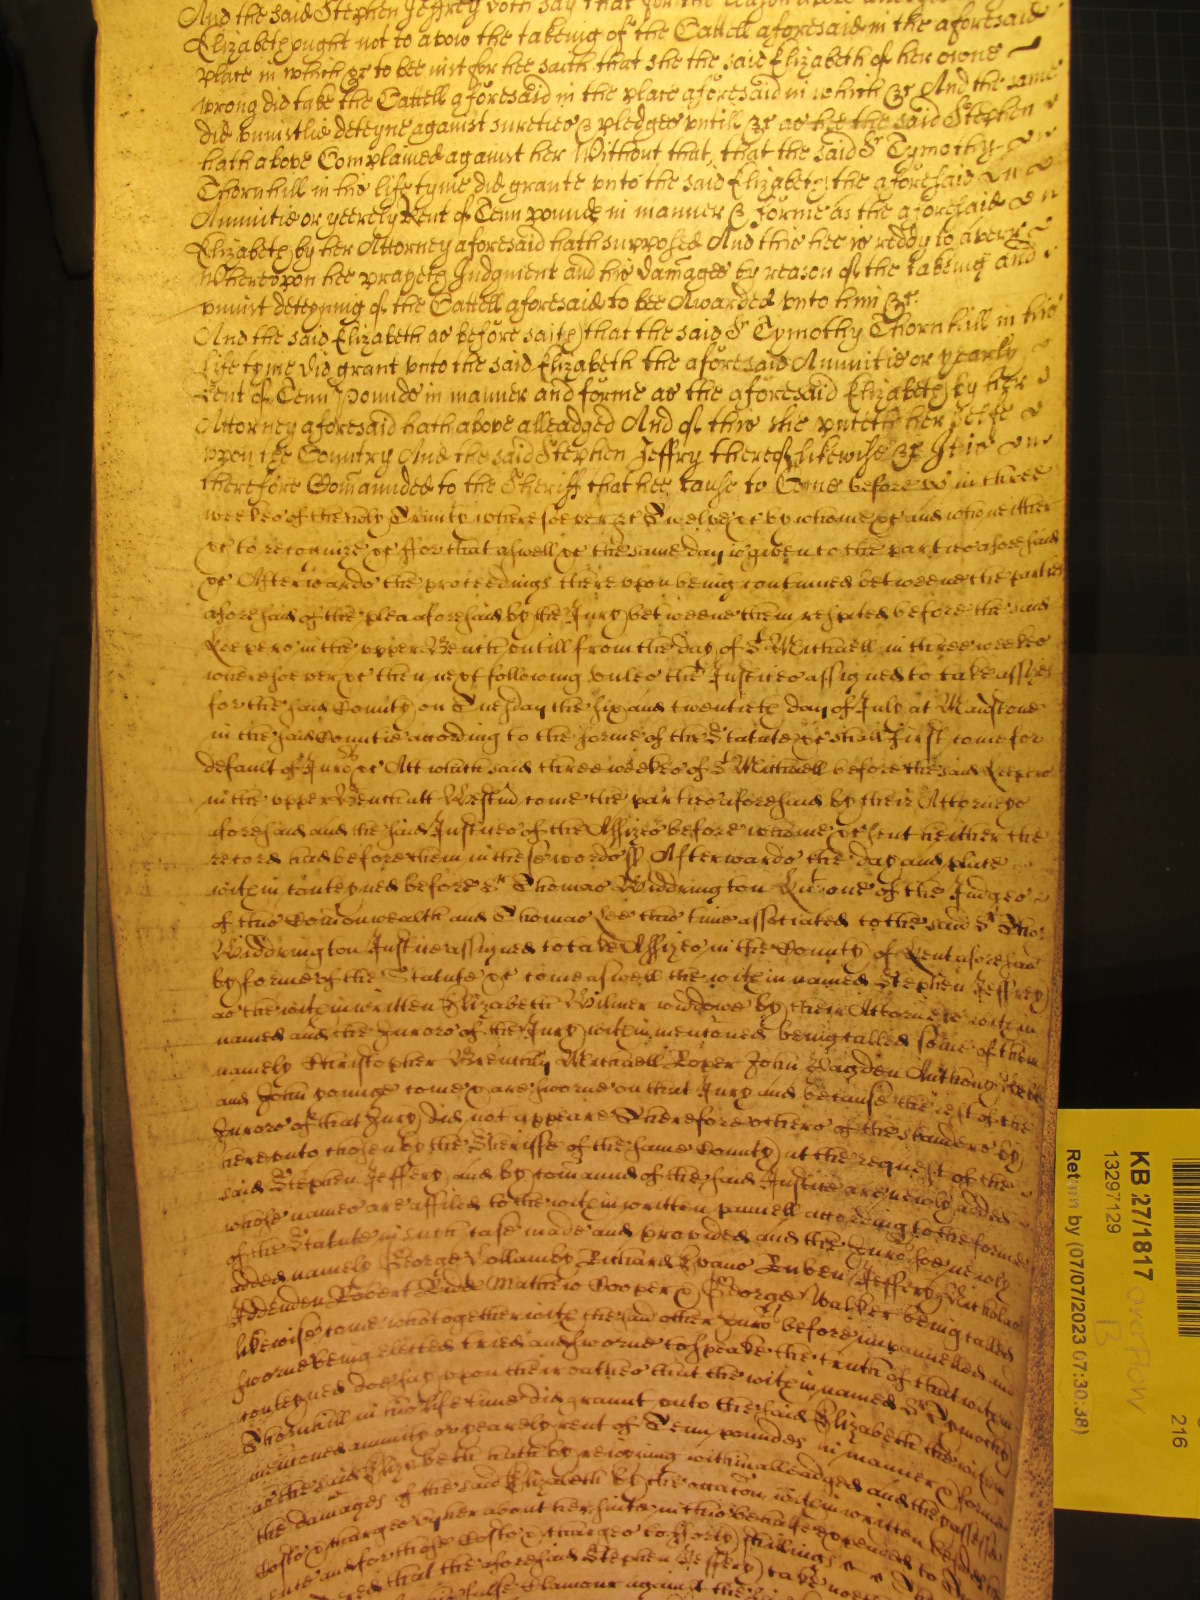 And the said Stephen Jeffrey doth say that for the reason above
Elizabeth ought not to avow the takeing of the Cattell aforesaid in the aforesaid
place in which &c to bee iust for hee saith that she the said Elizabeth of her owne
wrong did take the Cattell aforesaid in the place aforesaid in which &c And the same
did uniustlie deteyne against sureties & pledges untill &c as hee the said Stephen
hath above Complained against her Without that, that the said Sr Tymothy
Thornhill in his life tyme did grante unto the said Elizabeth the aforesaid
Annuitie or yeerely Rent of Tenn pounds in manner & forme as the aforesaid
Elizabeth by her Attorney aforesaid hath supposed And this hee is reddy to averr
Whereupon hee prayeth Judgment and his damages by reason of the takeing and
uniust deteyning of the Cattell aforesaid to bee Awarded unto him &c.
And the said Elizabeth as before saith that the said Sr Tymothy Thornhill in his
life tyme did grant unto the said Elizabeth the aforesaid Annuitie or yearly
Rent of Tenn Pounds in manner and forme as the aforesaid Elizabeth by her
Attorney aforesaid hath above alleadged And of this she putteth her selfe
upon the Country And the said Stephen Jeffry thereof likewise &c It is
therefore Comanided to the Sheriff that hee cause to Come before us in three
weekes of the holy Trinity wheresoever &c Twelve &c by whome &c and who neither
&c to recognize &c ffor that aswell &c the same day is given to the parties aforesaid
&c Afterwards the proceedings thereupon being continued betweene the parties
aforesaid of the plea aforesaid by the Jury betweene them respited before the said
Keepers in the upper Bench untill from the day of St Michaell in three weekes
wheresoever &c then next following unles the Justices assigned to take assizes
for the said County on Tuesday the six and twentieth day of July at Maidstone
in the said Countie according to the forme of the Statute &c shall first come for
default of Jurors &c Att which said three weekes of St Michaell before the said Keepers
in the upper Bench att Westm come the parties aforesaid by their Attorneys
aforesaid and the said Justices of the Assizes before whome &c sent heither the
record had before them in these words ss Afterwards the day and place
within conteyned before Sr Thomas Widdrington Kt one of the Judges
of this Comonwealth and Thomas Lee this time associated to the said Sr Tho:
Widdrington Justice assigned to take Assizes in the County of Kent aforesaid
by forme of the Statute &c come aswell the within named Stephen Jeffery
as the within written Elizabeth Wilmer widdowe by their Attorneys within
named and the Jurors of the Jury within mentioned being called some of them
namely Christopher Michaell Roper John Anthony
and John younge come & are sworne on that Jury and because the rest of the
Jurors of that Jury did not appeare Therefore others of the standers by
hereunto chosen by the Sheriffe of the same County att the request of the
said Stephen Jeffery and by comaund of the said Justice are newly added
whose names are affiled to the within written pannell according to the forme
of the Statute in such case made and provided and the Jurors soe newly
added namely George Richard Evans Ruben Jeffery Nicholas
Iddenden Robert Mathew Cooper & George Walker being called
likewise come who together with the said other Jurors before impannelled and
sworne being elected tried and sworne to speake the truth of that within
conteyned doe say upon their oathes that the within named Sr Tymothy
Thornhill in his life time did graunt unto the said Elizabeth the within
mencioned annuity or yearely rent of Tenn poundes in manner & forme
as the said Elizabeth hath by within alleadged and they assesse
the damages of the said Elizabeth by the occasion within written besides
Costs & charges by her about her suite in this behalfe expended to
and for those Costs & charges to Forty shillings
that the aforesaid Stephen Jeffery take
false Clamour against the
KB 27/1817
13297129
OVERFLOW
B
Return by (07/07/2023 07:30:38)
216